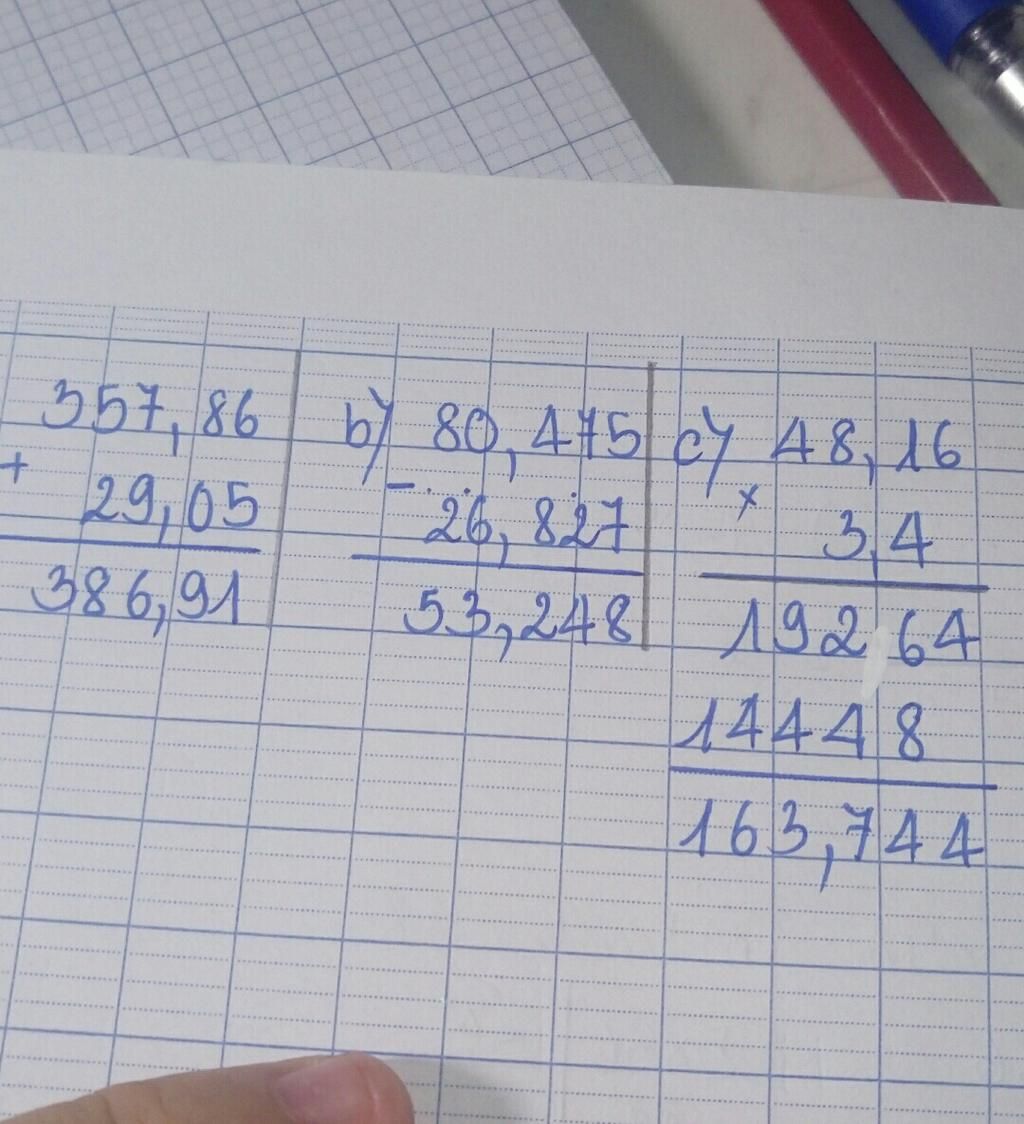 357,86
+ 29,05
386,91
b) 80,475
- 26,827
53,248
c) 48,16
x 3,4
192 64
1444 8
163,744